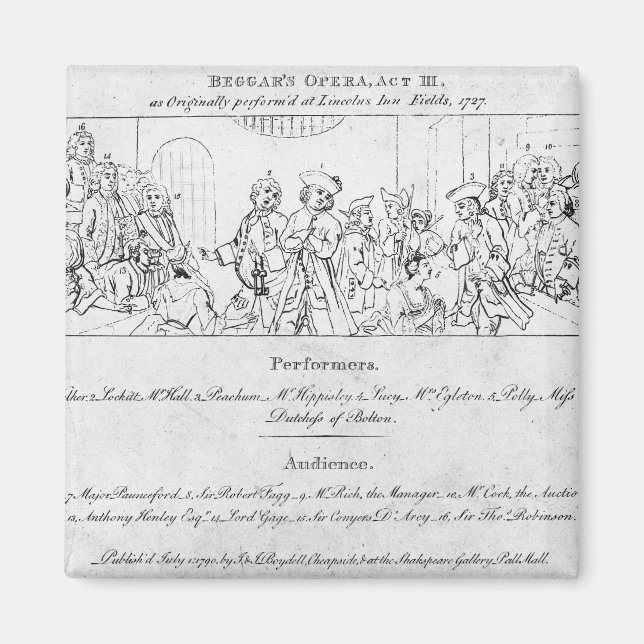 BEGGAR'S OPERA, ACT III.
as Originally perform'd at Lincolns Inn Fields, 1727.
16
14
15
2
1
3
11
9
10
13
5
Performers.
lker. 2_Lockitt Mr. Hall. 3_Peachum_Mr. Hippisley. 4_Lucy_Mrs. Egleton. 5_Polly_Miss
Dutchess of Bolton.
Audience.
7 Major Paunceford_8_Sir Robert Fagg_9_Mr. Rich, the Manager_10_Mr. Cock, the Auctio
13_Anthony Henley Esqr. 14_Lord Gage_15_Sir Conyers D'Arcy_16_Sir Thos. Robinson.
Publish'd July 1: 1790, by J. & J. Boydell, Cheapside, & at the Shakspeare Gallery Pall Mall.